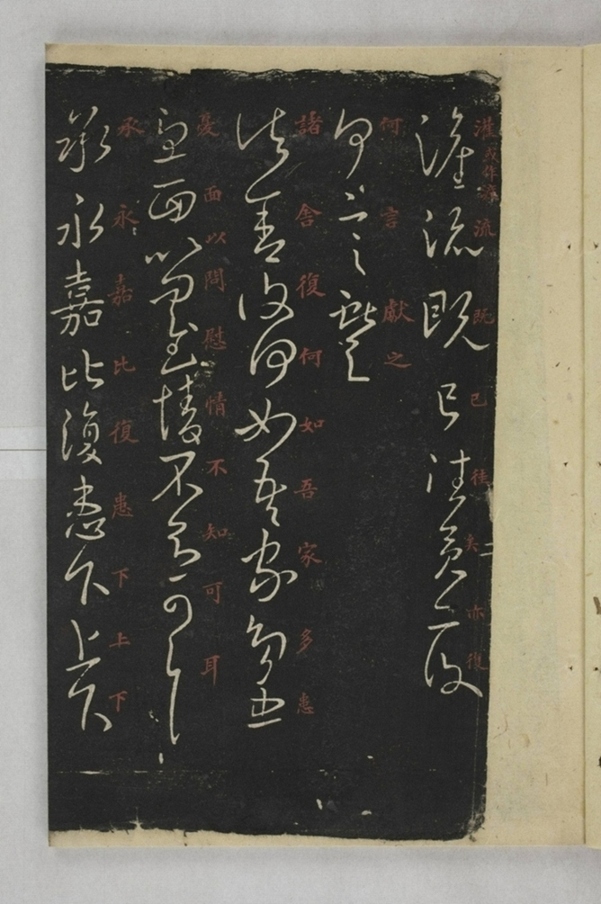 灌或作 流既已往矣亦復
流既已往矣亦復
何言獻之
何言獻之
諸舍復何如吾家多患
諸舍復何如吾家多患
憂面以問慰情不知可耳
憂面以問慰情不知可耳
承永嘉比復患下上下
承永嘉比復患下上下